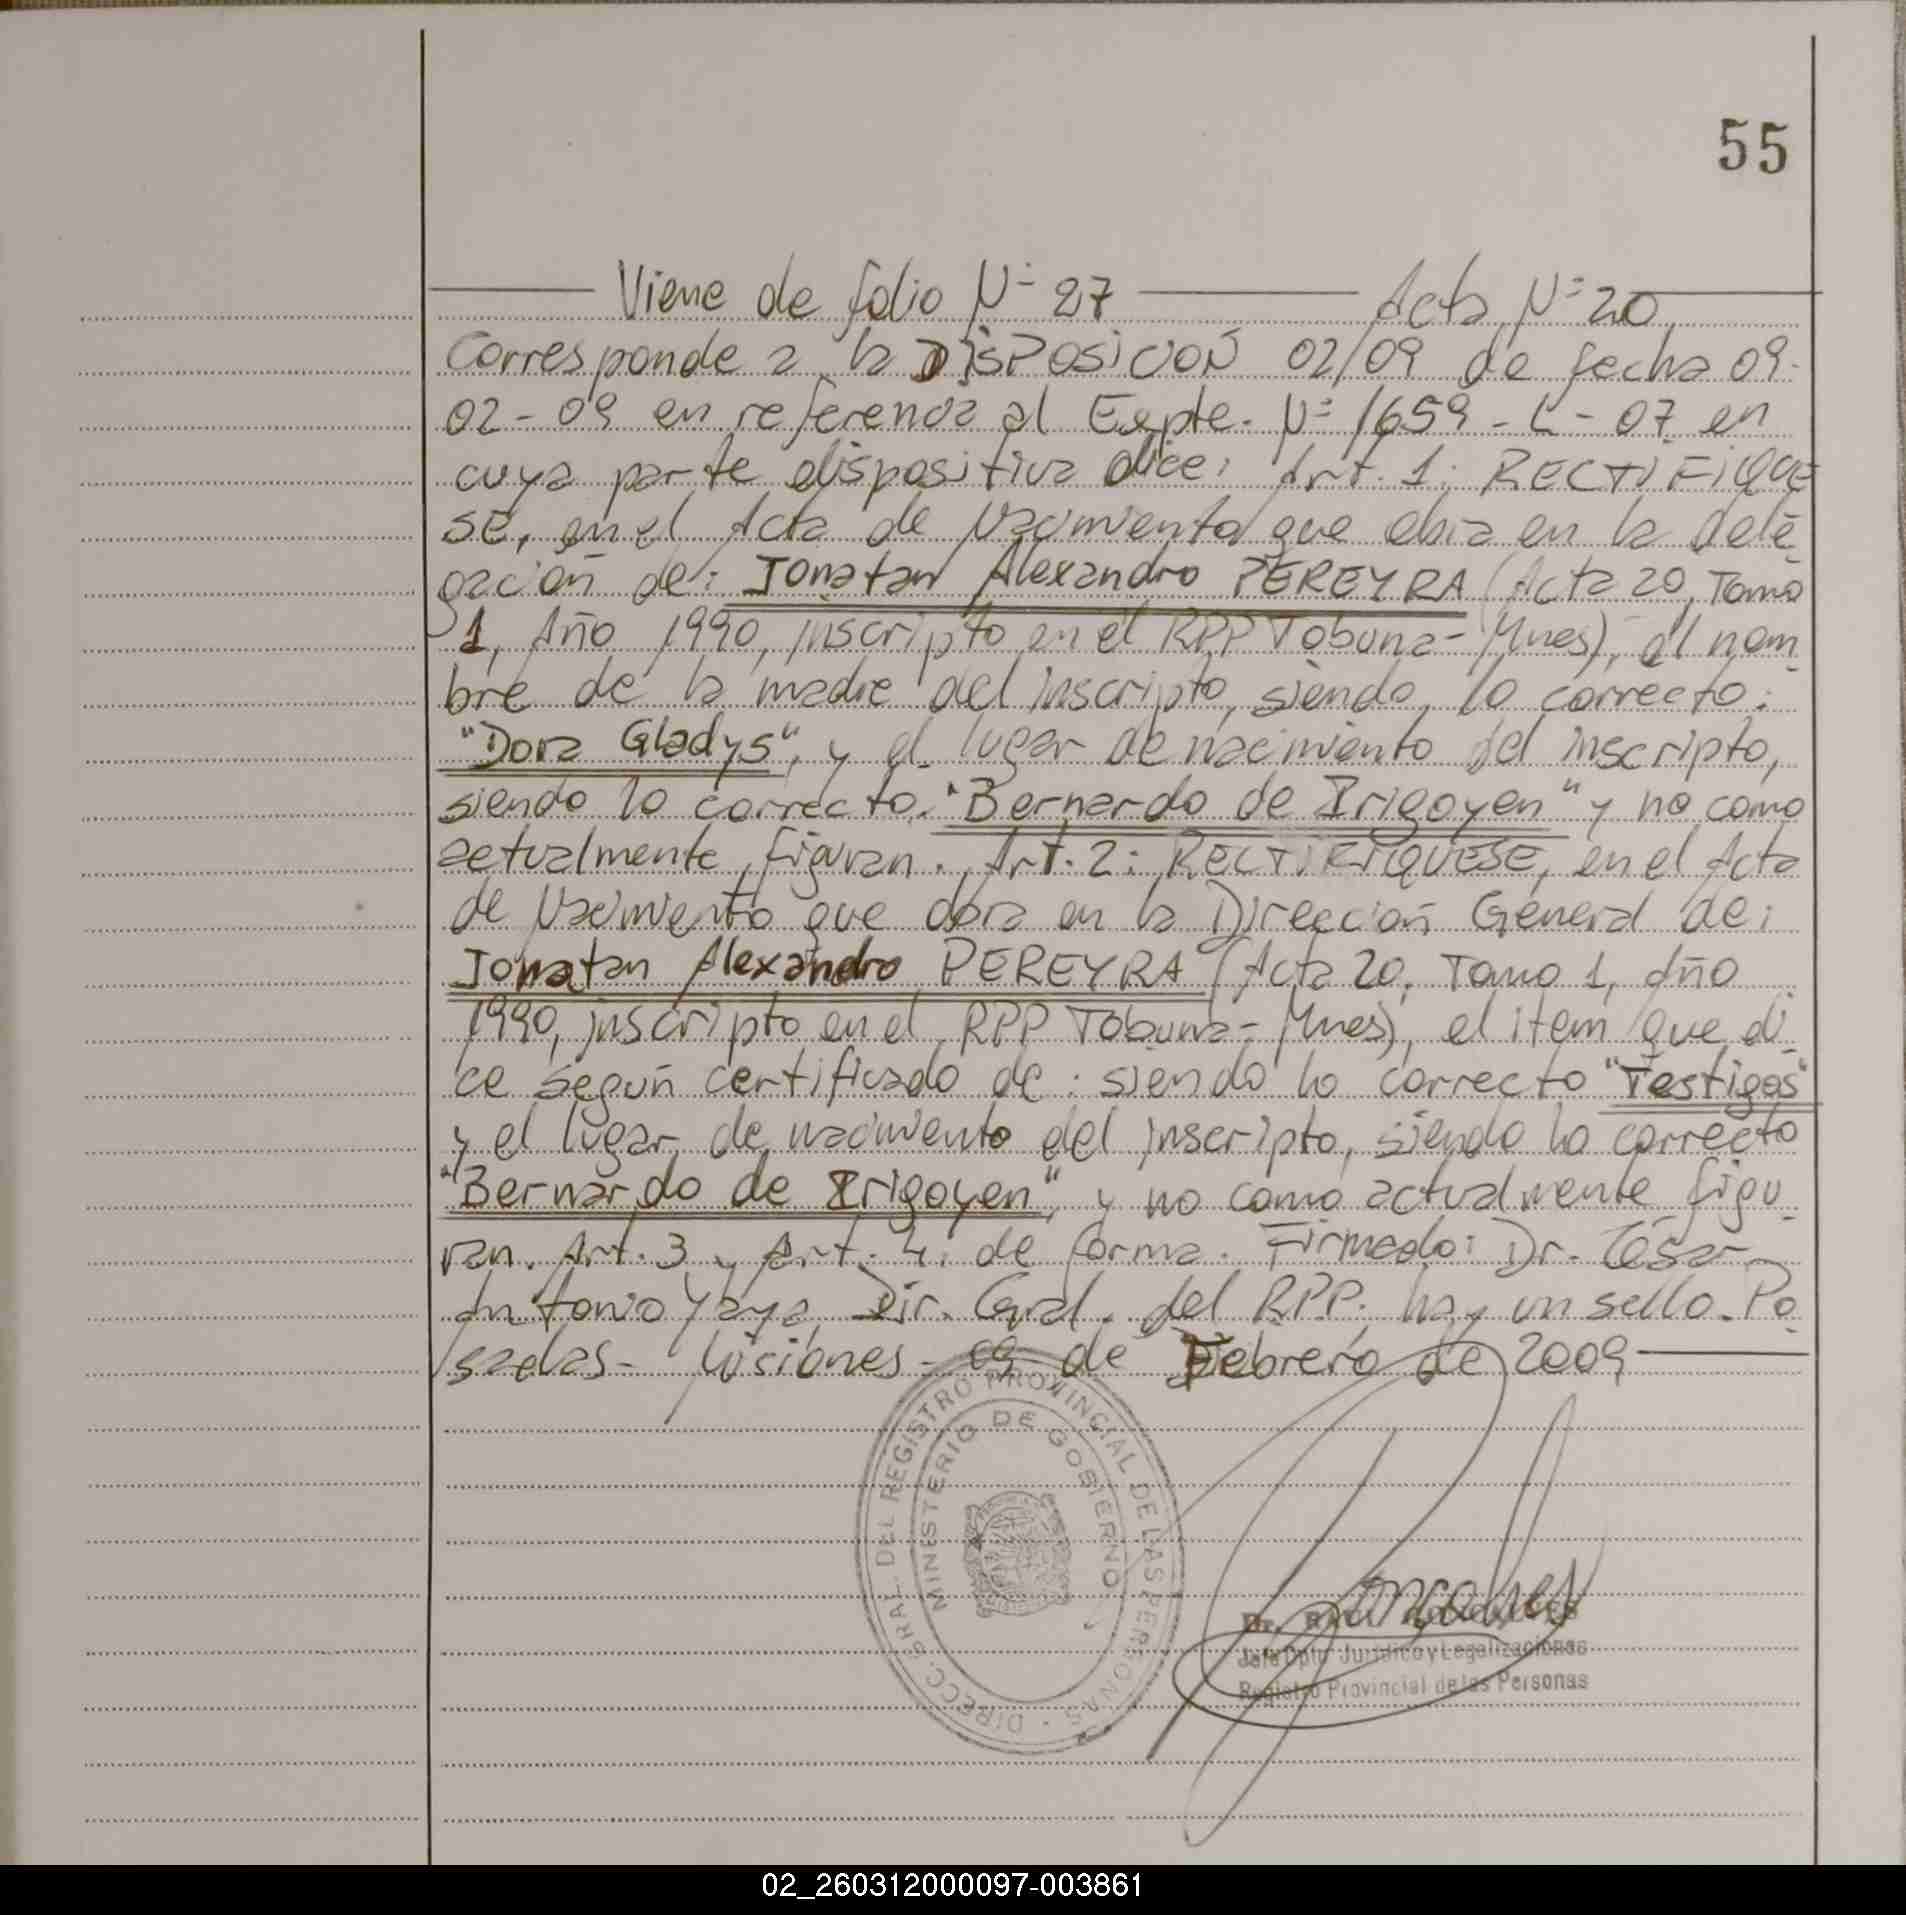 55
Viene de folio Nº 27 Acta Nº 20
Corresponde a la DISPOSICION 02/09 de fecha 09-
02-09 en referencia al Expte. Nº 1659-L-07 en
cuya parte dispositiva dice: Art. 1: RECTIFIQUE
SE, en el Acta de Nacimiento que obra en la dele
gación de: Jonatan Alexandro PEREYRA (Acta 20, Tomo
1, Año 1990, inscripto en el RPP Tobuna-Mnes), el nom
bre de la madre del inscripto, siendo lo correcto:
"Dora Gladys", y el lugar de nacimiento del inscripto,
siendo lo correcto. "Bernardo de Irigoyen" y no como
actualmente figuran. Art. 2: RECTIFIQUESE, en el Acta
de Nacimiento que obra en la Dirección General de:
Jonatan Alexandro PEREYRA (Acta 20, Tomo 1, Año
1990, inscripto en el RPP Tobuna-Mnes), el item que di
ce según certificado de: siendo lo correcto "Testigos"
y el lugar de nacimiento del inscripto, siendo lo correcto
"Bernardo de Irigoyen", y no como actualmente figu
ran. Art. 3 y Art. 4. de forma. Firmado: Dr. César
Antonio Yaya Dir. Gral. del RPP. hay un sello. Po
sadas- Misiones- 09 de Febrero de 2009
DIRECC. GRAL. DEL REGISTRO PROVINCIAL DE LAS PERSONAS
MINISTERIO DE GOBIERNO
Dr.
Jefe Dpto Jurídico y Legalizaciones
Registro Provincial de las Personas
02_260312000097-003861